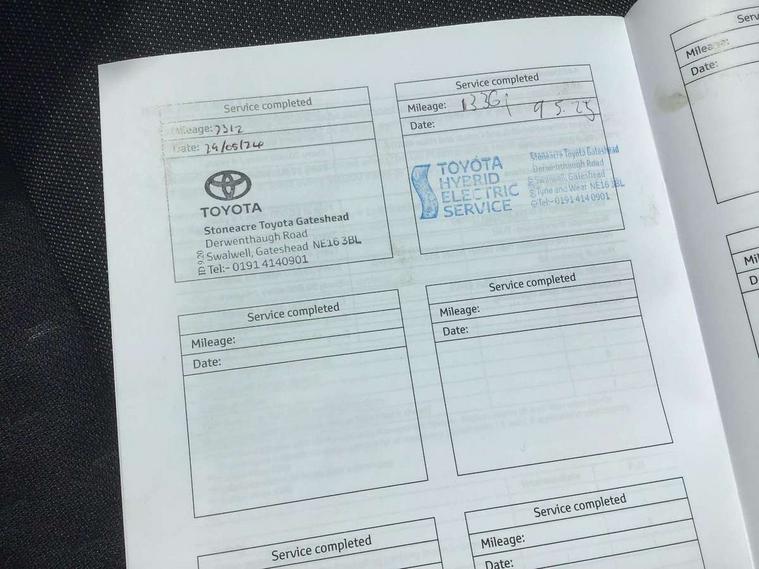 Service completed
Mileage: 7312
Date: 29/05/24
TOYOTA
Stoneacre Toyota Gateshead
Derwenthaugh Road
Swalwell, Gateshead NE16 3BL
Tel:- 0191 4140901
Service completed
Mileage:
9 5.25
Date:
TOYOTA
HYBRID
ELECTRIC
SERVICE
Stoneacre Toyota Gateshead
Derwenthaugh Road
Swalwell, Gateshead
Tyne and Wear NE16 3BL
Tel:- 0191 414 0901
Service completed
Mileage:
Date:
Service completed
Mileage:
Date:
Service completed
Service completed
Mileage:
Date:
Mileage:
Date: